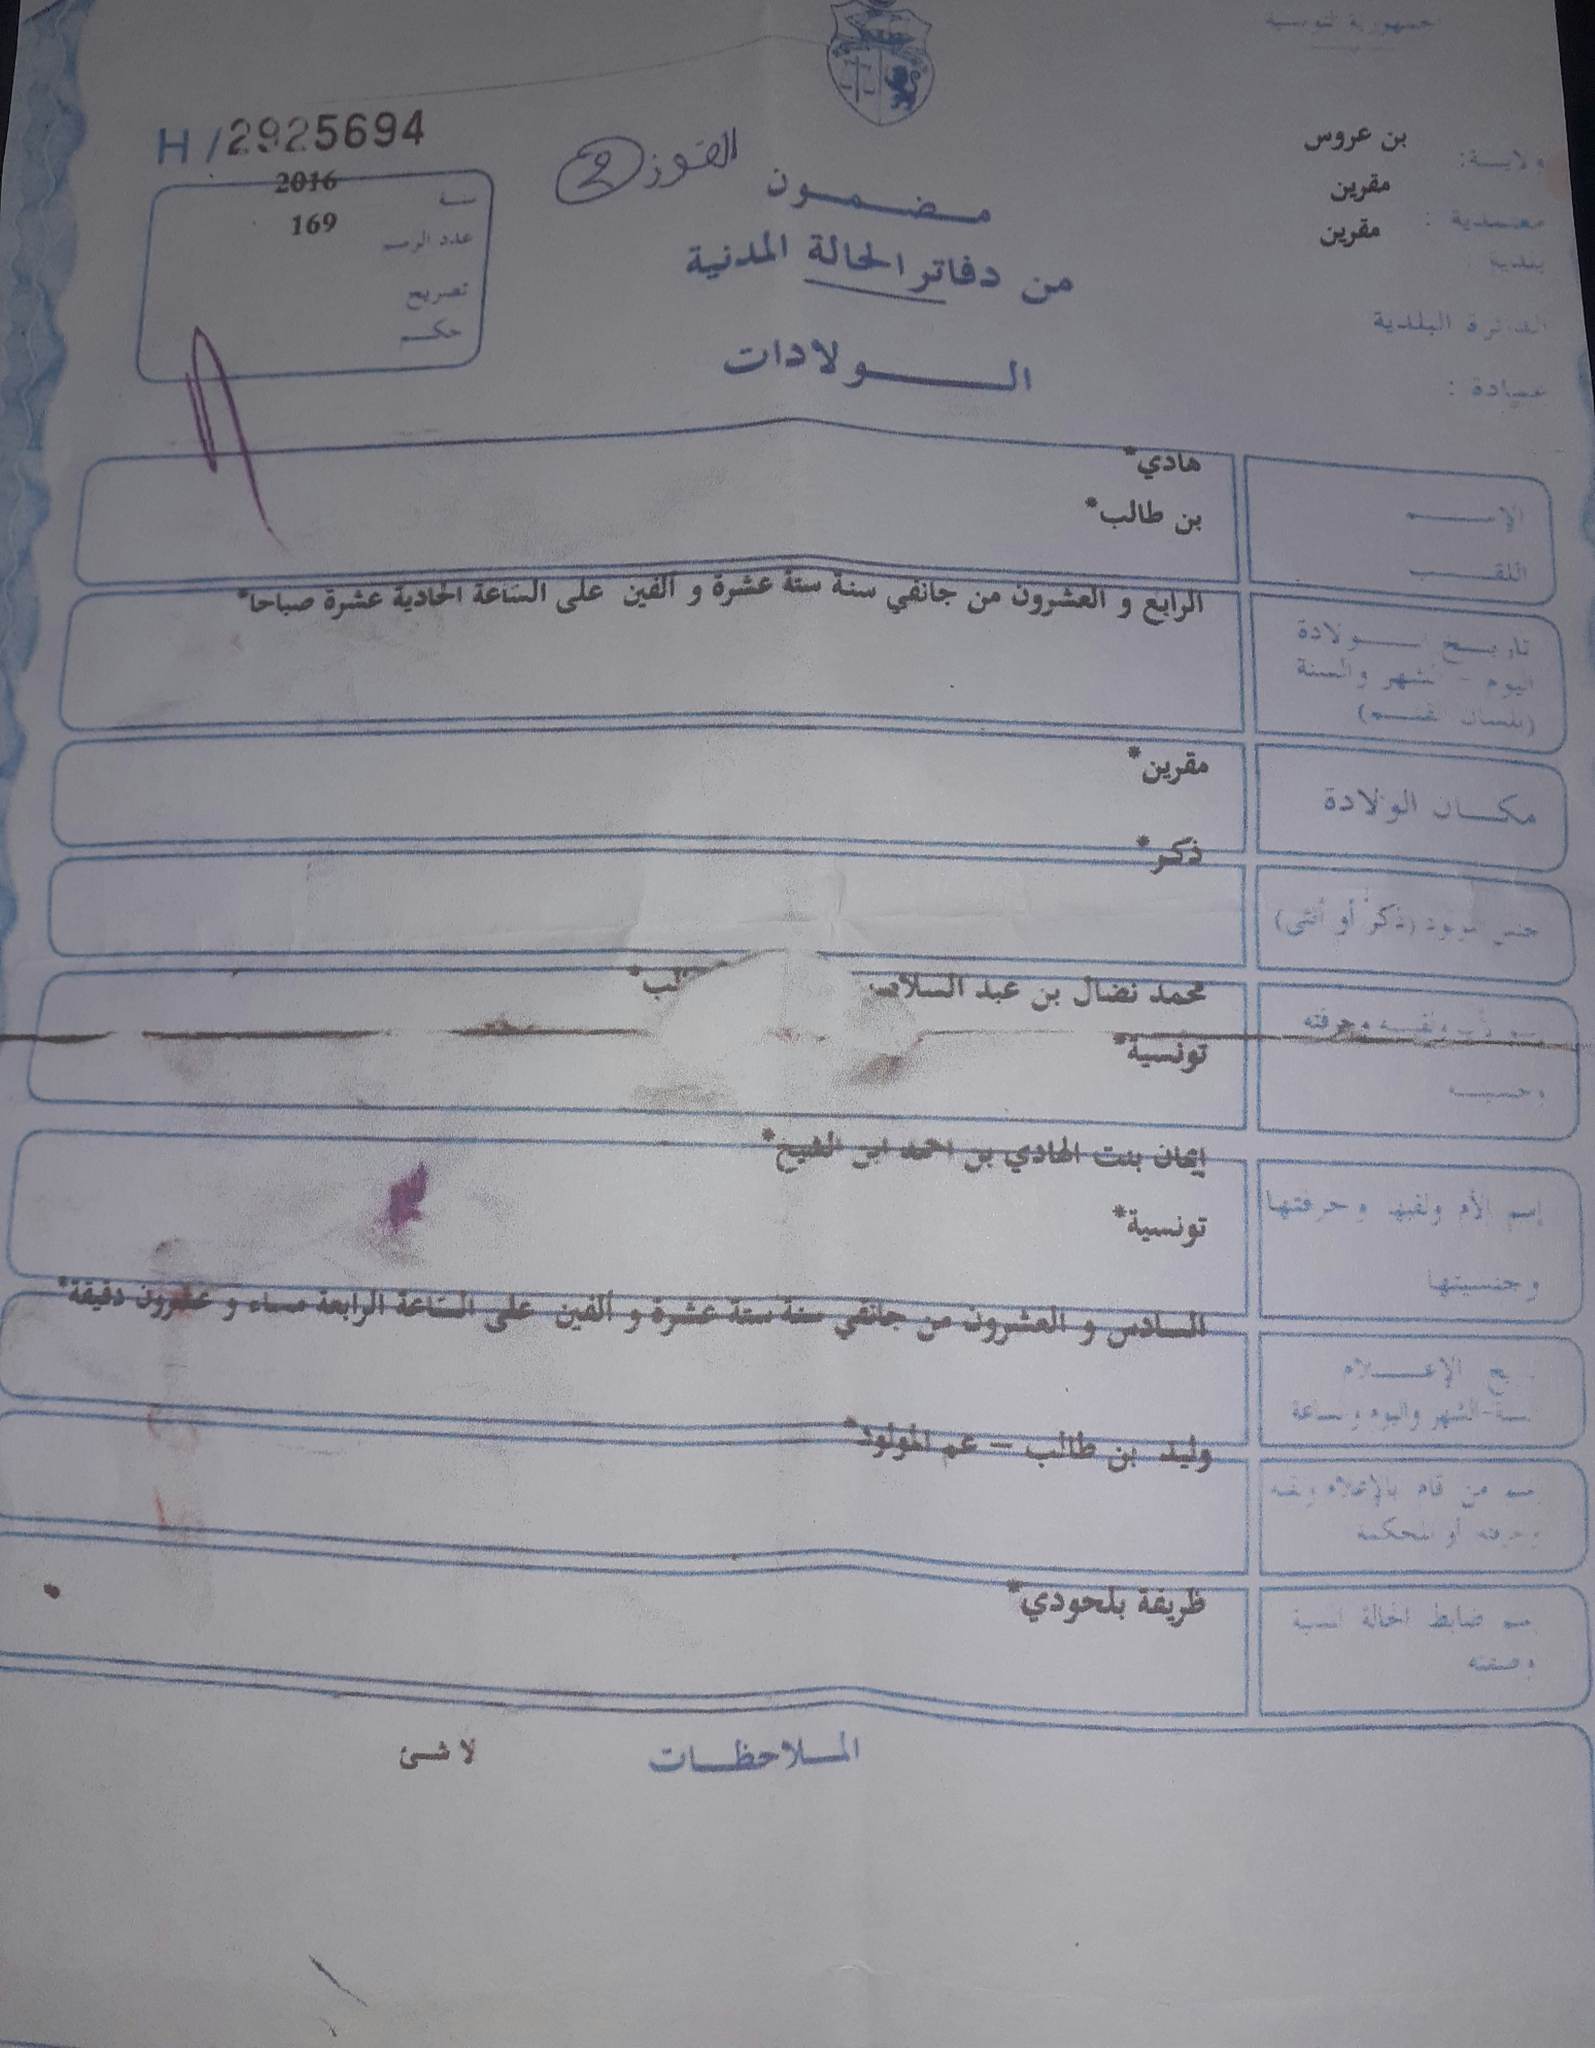 جمهورية التونسية
ولاية: بن عروس
معتمدية : مقرين
بلدية مقرين
الدائرة البلدية
عيادة :
H/2925694
سنة 2016
عدد الرسم 169
تصريح
حكم
2
مضمون
من دفاتر الحالة المدنية
الولادات
الإسم هادي*
اللقب بن طالب*
تاريخ الولادة الرابع و العشرون من جانفي سنة ستة عشرة و ألفين على الساعة الحادية عشرة صباحا*
اليوم - الشهر والسنة
(بلسان القلم)
مكان الولادة مقرين*
جنس المولود (ذكر أو أنثى) ذكر*
وحرفته محمد نضال بن عبد السلام
تونسية*
إسم الأم ولقبها وحرفتها إيمان بنت الهادي بن احمد ابن الشيخ*
وجنسيتها تونسية*
الإعلام السادس و العشرون من جانفي سنة ستة عشرة و ألفين على الساعة الرابعة مساء و عشرون دقيقة*
السنة-الشهر واليوم وساعة
من قام بالإعلام ولقبه وليد بن طالب – عم المولود*
وحرفته أو المحكمة
ضابط الحالة المدنية ظريفة بلحودي*
وصفته
الملاحظات لا شئ